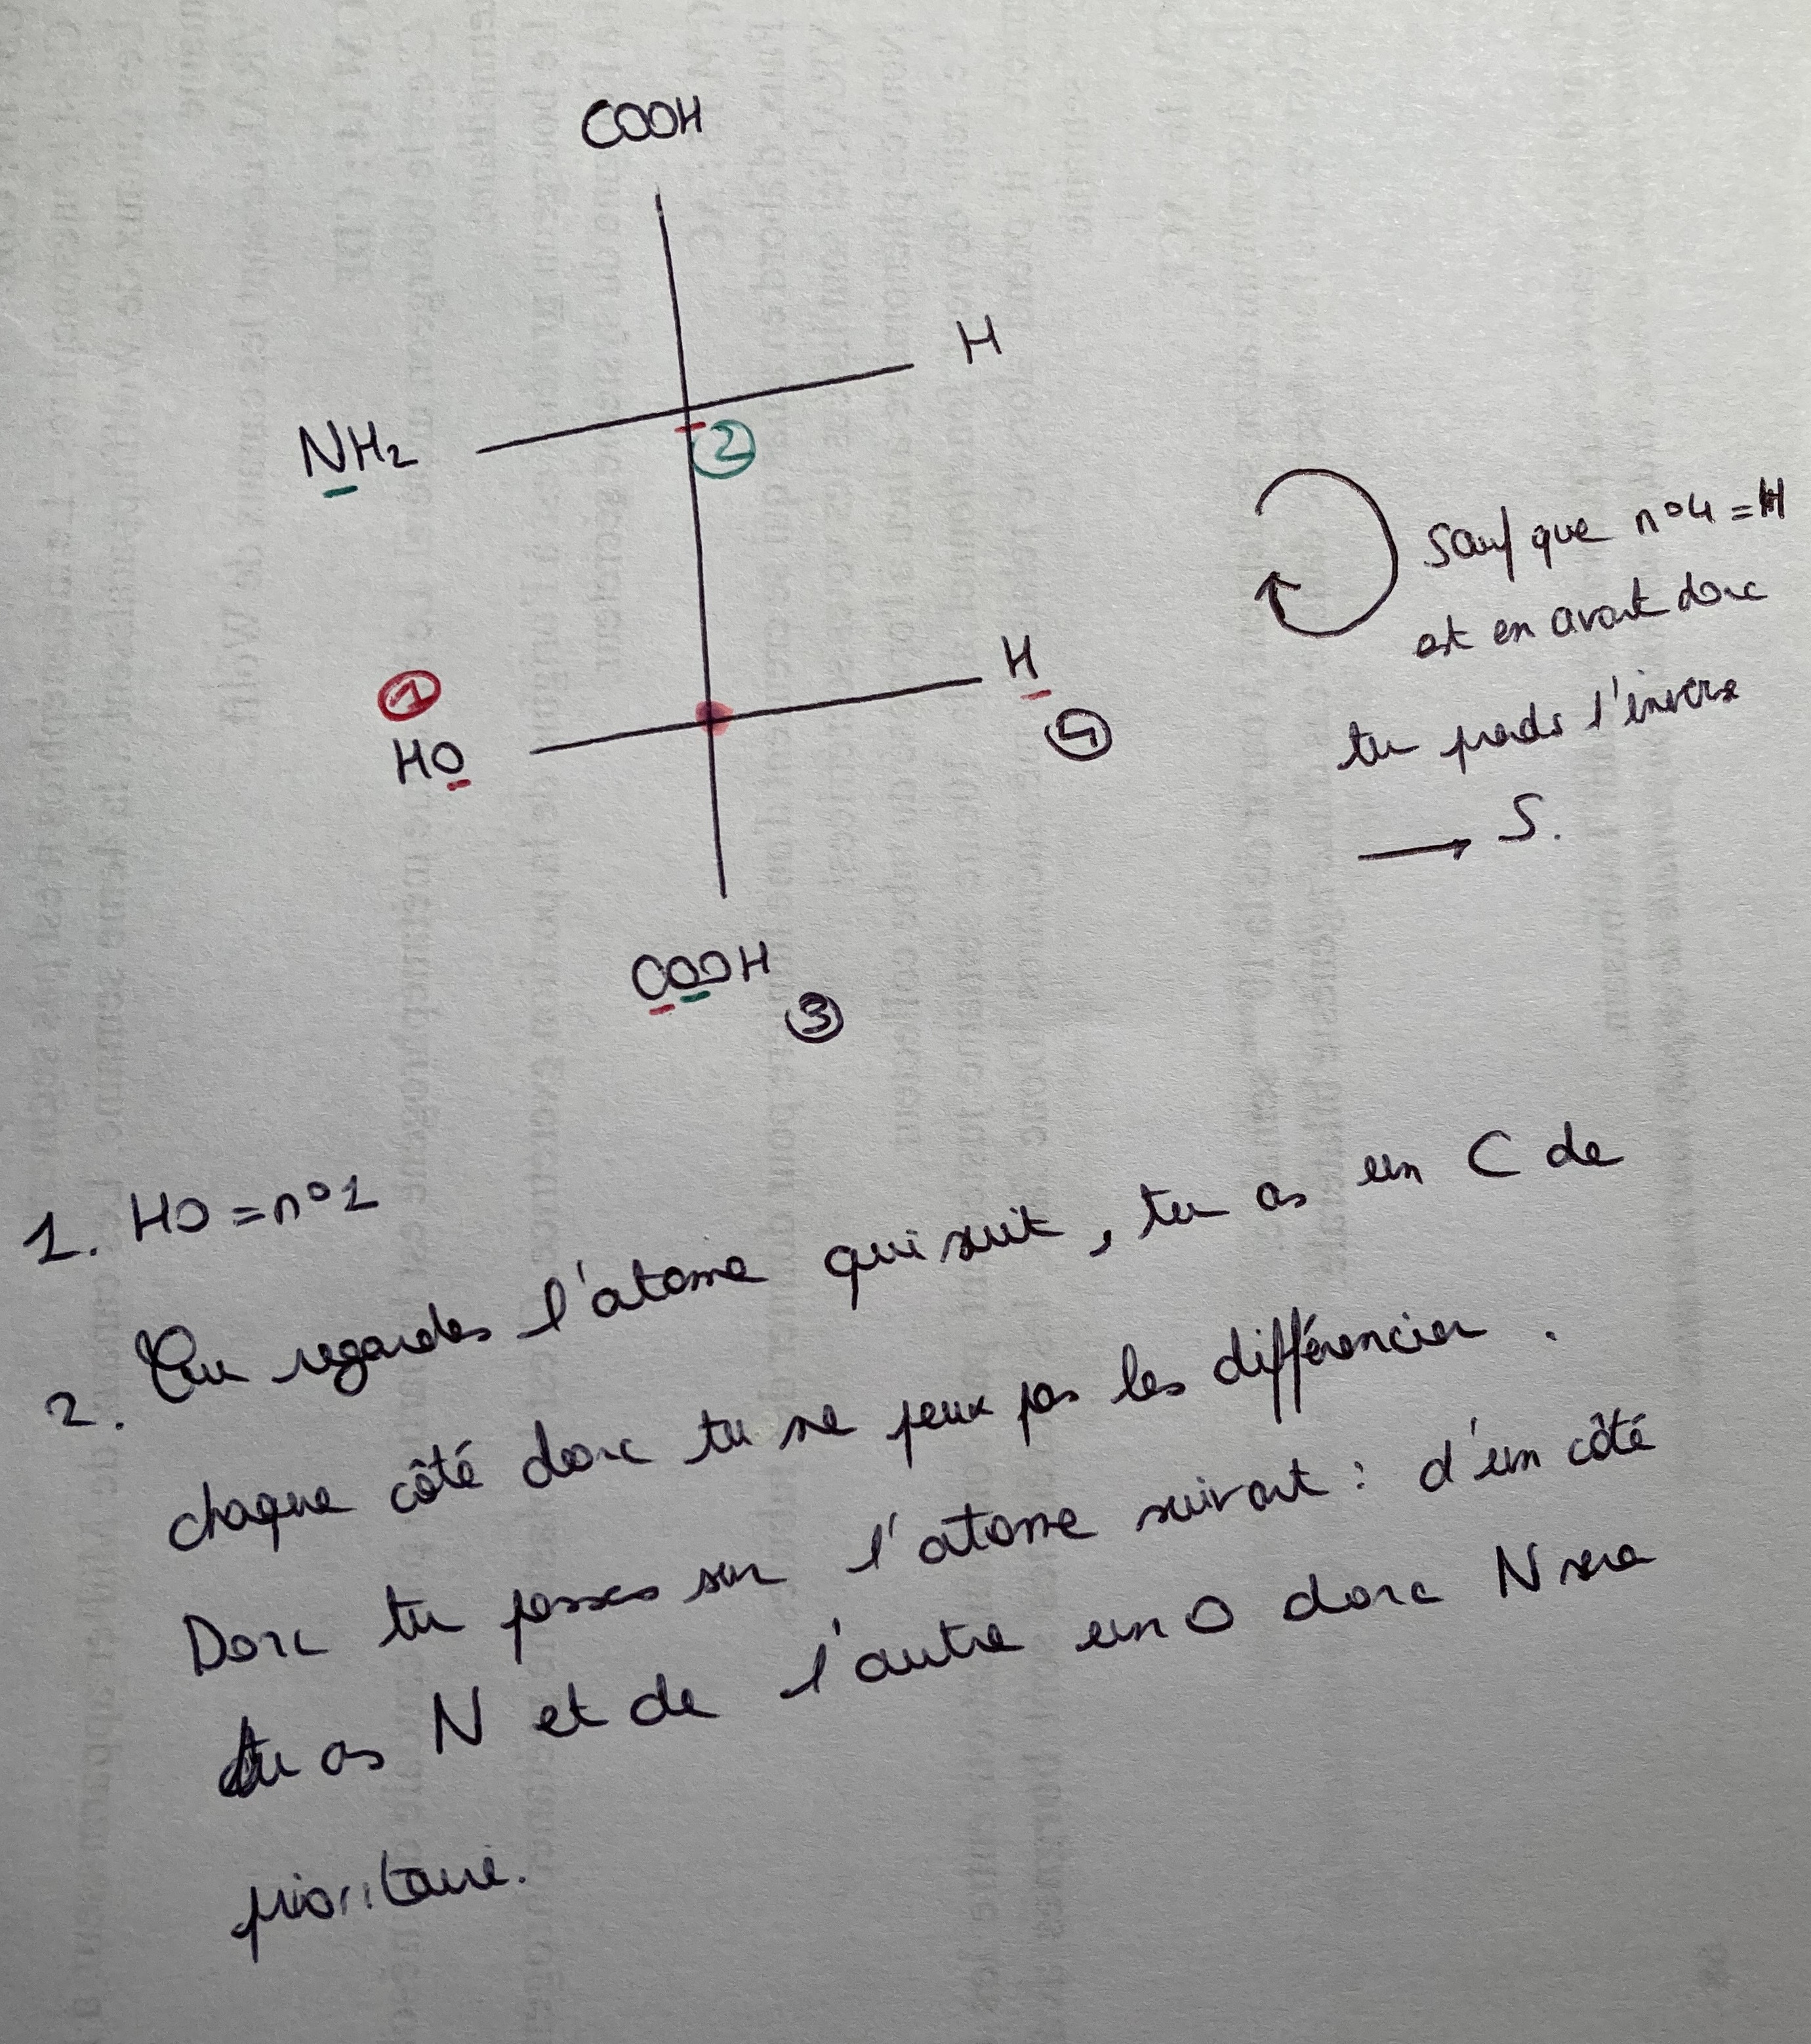 COOH
H
NH2
2
sauf que n°4 = H
est en avant donc
tu prends l'inverse
→ S.
1
HO
H
4
COOH
3
1. HO = n°1
2. Tu regardes l'atome qui suit, tu as un C de
chaque côté donc tu ne peux pas les différencier.
Donc tu passes sur l'atome suivant : d'un côté
tu as N et de l'autre un O donc N sera
prioritaire.